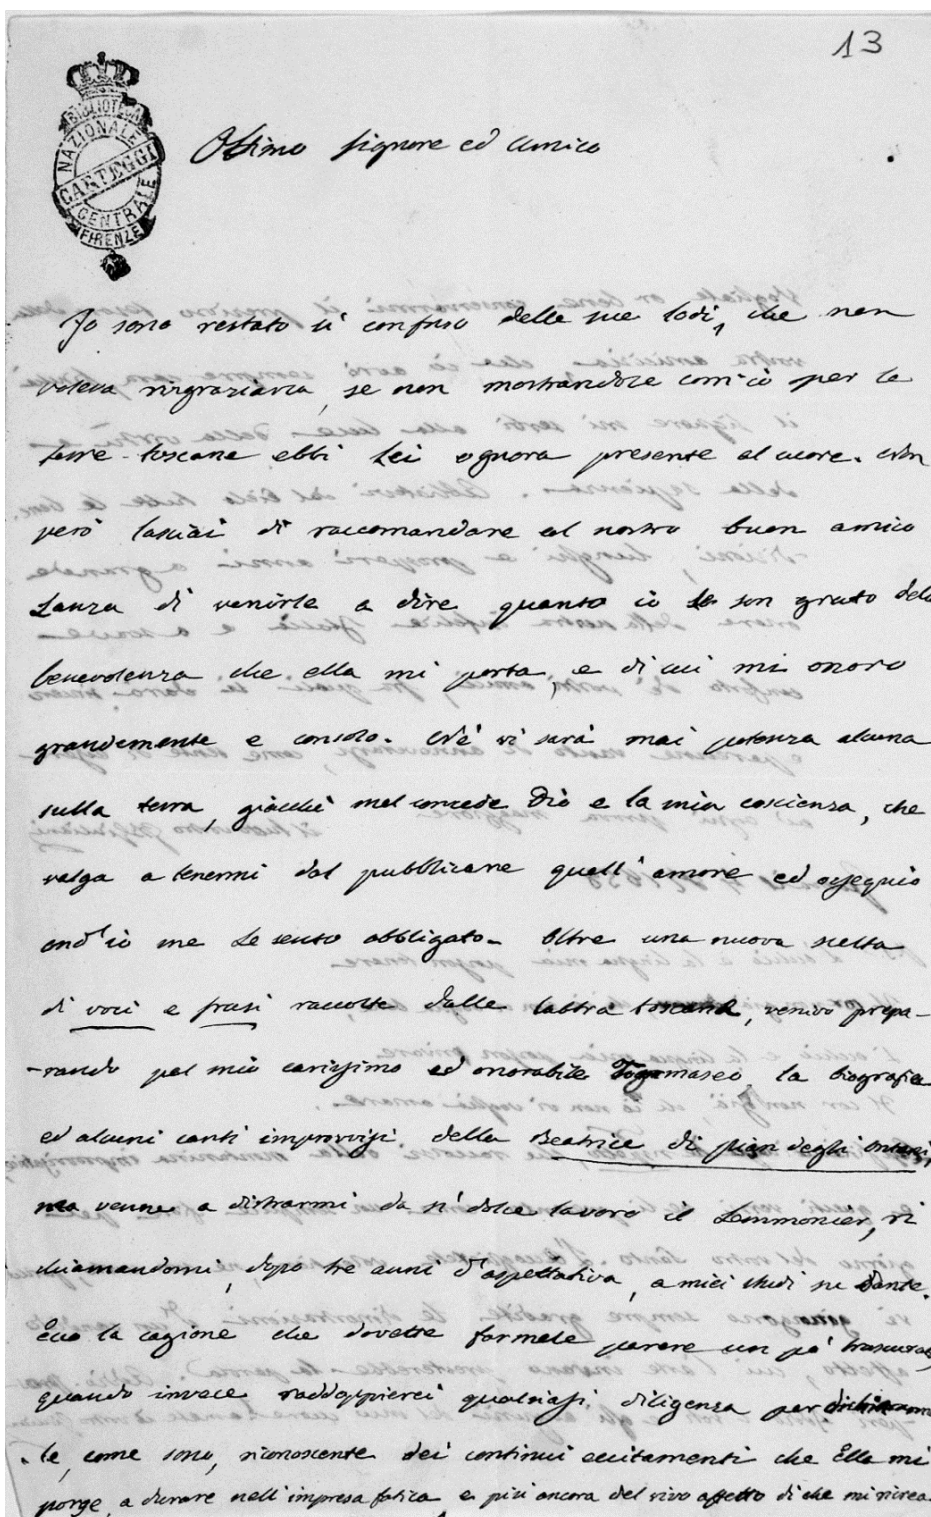 13
BIBLIOTECA
NAZIONALE
CARTEGGI
CENTRALE
FIRENZE
Ottimo Signore ed Amico
Io sono restato sì confuso delle sue lodi, che non
voleva ringraziarla, se non mostrandole com'io per le
terre toscane ebbi Lei ognora presente al cuore. Non
però lasciai di raccomandare al nostro buon amico
Lanza di venirle a dire quanto io le son grato della
benevolenza che ella mi porta, e di cui mi onoro
grandemente e consolo. Nè vi sarà mai potenza alcuna
sulla terra, giacchè mel concede Dio e la mia coscienza, che
valga a tenermi dal pubblicare quell'amore ed ossequio
ond'io me Le sento obbligato. Oltre una nuova scelta
di voci e frasi raccolte dalle labbra toscane, venivo prepa-
-rando pel mio carissimo ed onorabile Tommaseo, la biografia
ed alcuni canti improvvisi della Beatrice di pian degli Ontani,
ma venne a distrarmi da sì dolce lavoro il Lemmonier, ri
chiamandomi, dopo tre anni d'aspettativa, a miei studi su Dante.
Ecco la cagione che dovette farmele parere un po' trascurato,
quando invece raddoppierei qualsiasi diligenza per
le, come sono, riconoscente dei continui eccitamenti che Ella mi
porge, a durare nell'impresa fatica, e più ancora del vivo affetto di che mi ricrea.